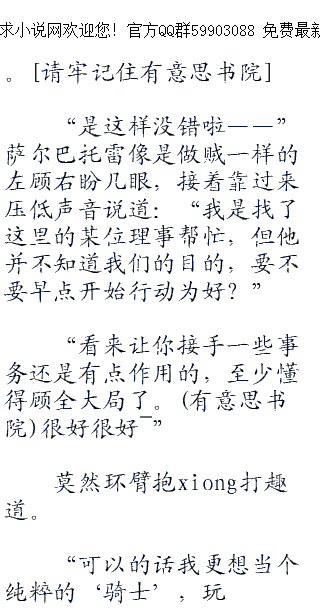 求小说网欢迎您！官方QQ群59903088 免费最新
。[请牢记住有意思书院]
“是这样没错啦——”
萨尔巴托雷像是做贼一样的
左顾右盼几眼，接着靠过来
压低声音说道：“我是找了
这里的某位理事帮忙，但他
并不知道我们的目的，要不
要早点开始行动为好？”
“看来让你接手一些事
务还是有点作用的，至少懂
得顾全大局了。(有意思书
院)很好很好~”
莫然环臂抱xiong打趣
道。
“可以的话我更想当个
纯粹的‘骑士’，玩